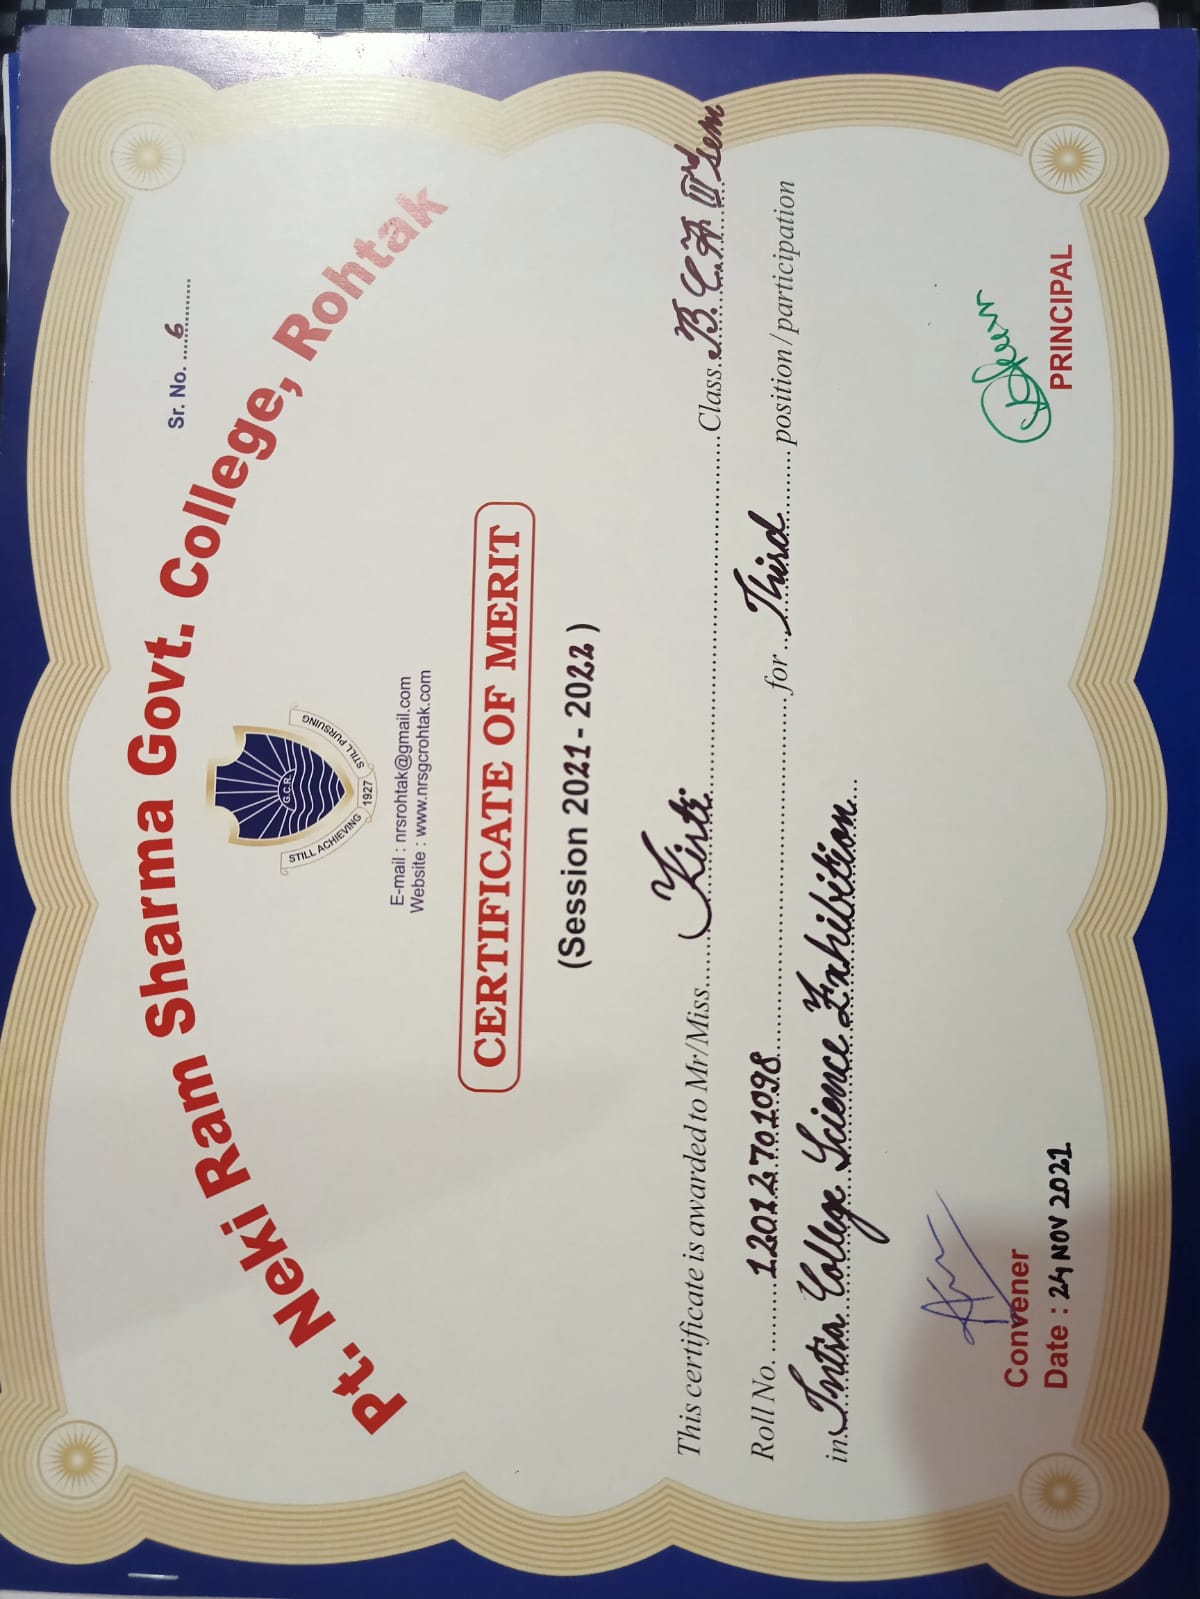 Sr. No. ...6...........
Pt. Neki Ram Sharma Govt. College, Rohtak
G.C.R.
STILL ACHIEVING 1927 STILL PURSUING
E-mail : nrsrohtak@gmail.com
Website : www.nrsgcrohtak.com
CERTIFICATE OF MERIT
(Session 2021 - 2022 )
This certificate is awarded to Mr/Miss......Kirti......Class...B.C.A IIIrd Sem
Roll No. ......12012701098......for...Third......position / participation
in..Intra College Science Exhibition...
Convener
Date : 24 NOV 2021
PRINCIPAL